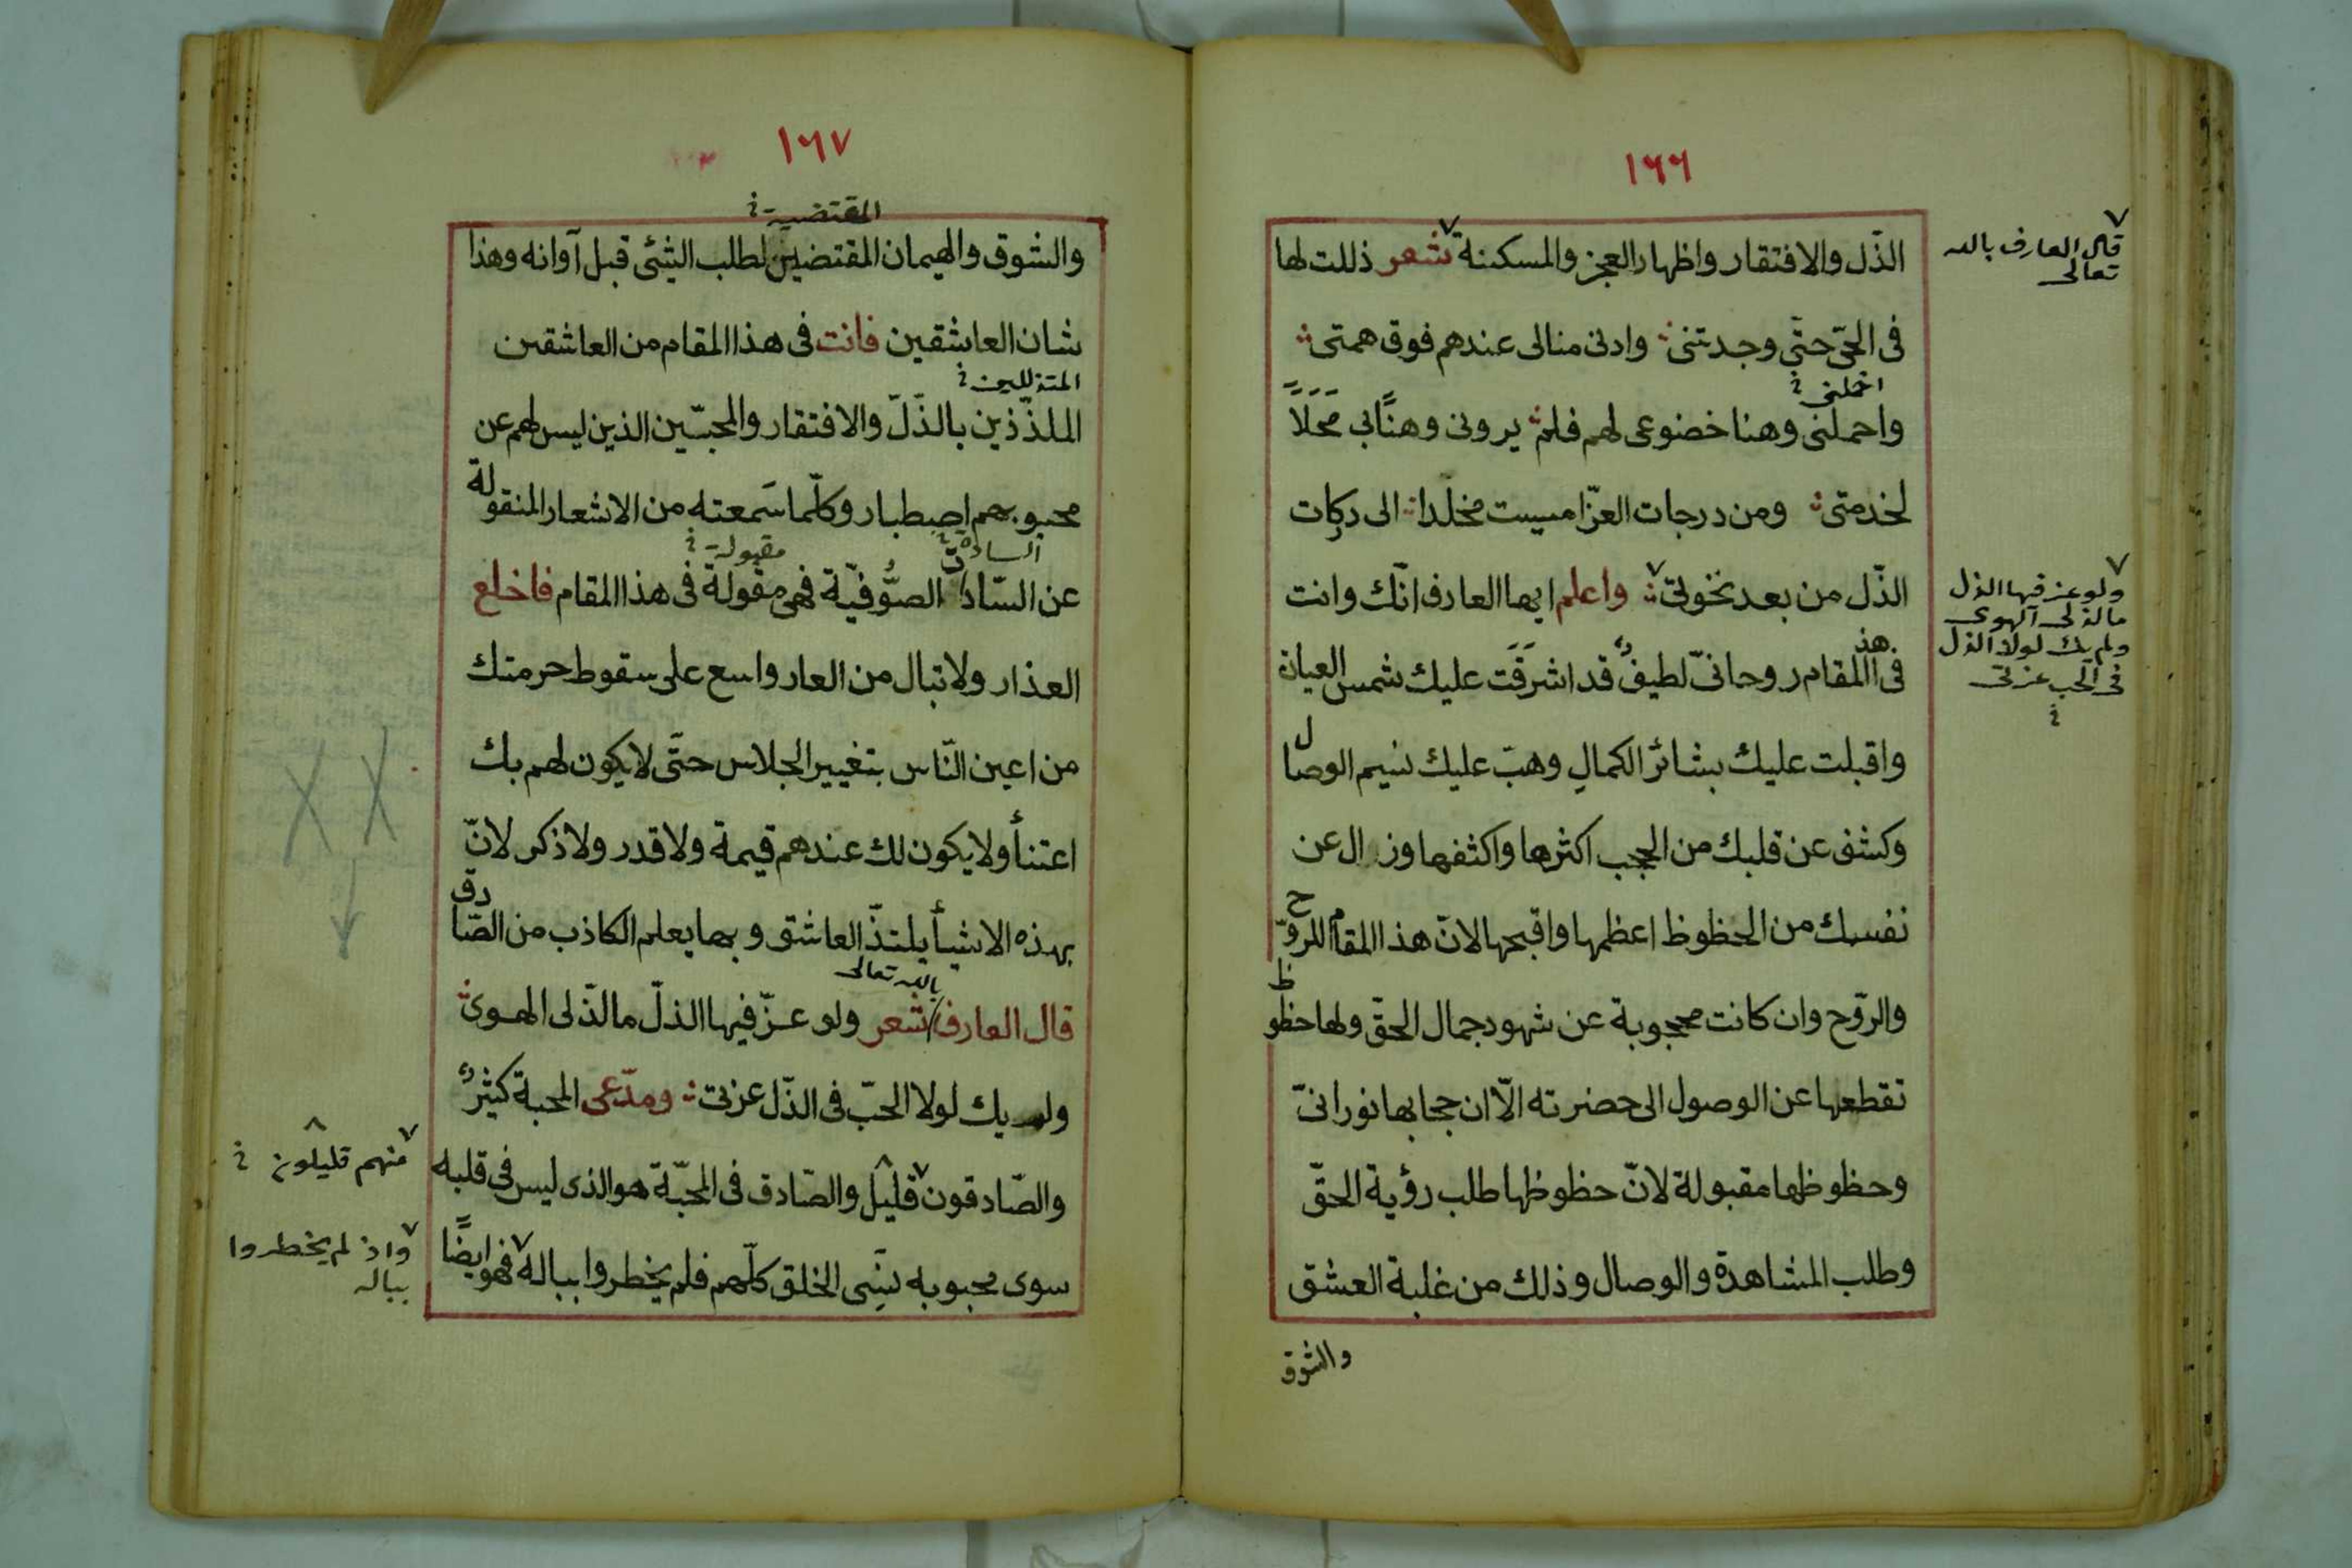 ١٦٦
الذّل والافتقار واظهار العجز والمسكنة شعر ذللت لها
قال العارف بالله
تعالى
فى الحىّ حتّى وجدتنى وادنى منالى عندهم فوق همتى
اخملنى خ
واحملنى وهنا خضوعى لهم فلم يرونى وهنًا بى محَلاً
لخدمتى ومن درجات العزّ امسيت مخلّدا الى دركات
الذّل من بعد نخوتى واعلم ايها العارف انّك وانت
ولو عز فيها الذل
ما لذ لى الهوى
ولم يك لولا الذل
فى الحب عزتى
خ
فى هذا المقام روحانىّ لطيفٌ قد اشرَقَت عليك شمس العيان
واقبلت عليك بشائر الكمالِ وهبّ عليك نسيم الوصال
وكشف عن قلبك من الحجب اكثرها واكثفها وزال عن
نفسك من الحظوظ اعظمها واقبحها لانّ هذا المقام للروّح
والرّوح وان كانت محجوبة عن شهود جمال الحقّ ولها حظوظ
تقطعها عن الوصول الى حضرته الّا ان حجابها نورانىّ
وحظوظها مقبولة لانّ حظوظها طلب رؤية الحقّ
وطلب المشاهدة والوصال وذلك من غلبة العشق
والشوق
١٦٧
المقتضية خ
والشوق والهيمان المقتضيين لطلب الشئى قبل آوانه وهذا
شان العاشقين فانت فى هذا المقام من العاشقين
المتذللين خ
الملذّذين بالذّلّ والافتقار والمحبّين الذين ليس لهم عن
محبوبهم اصطبار وكلّما سَمعته من الاشعار المنقولة
السادة خ مقبولة خ
عن السّادات الصُّوفيّة فهى مقولة فى هذا المقام فاخلع
العذار ولا تبال من العار واسع على سقوط حرمتك
من اعين النّاس بتغيير الجلاس حتّى لا يكون لهم بك
اعتنأ ولا يكون لك عندهم قيمة ولا قدر ولا ذكر لانّ
بهذه الاشيأ يلتذّ العاشق وبها يعلم الكاذب من الصّادق
بالله تعالى
قال العارف شعر ولو عزّ فيها الذلّ ما لذّ لى الهوى
ولم يك لولا الحبّ فى الذّل عزتى ومدّعى المحبة كثيرٌ
منهم قليلون خ
والصّادقون قليل والصّادق فى المحبّة هو الذى ليس فى قلبه
سوى محبوبه نسِىَ الخلق كلّهم فلم يخطروا بباله فهو ايضًا
واذ لم يخطروا
بباله